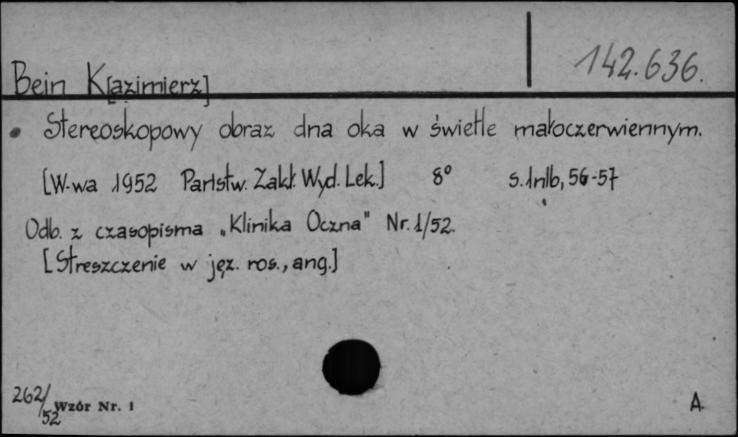 142.636.
Bein K[azimierz]
Stereoskopowy obraz dna oka w świetle małoczerwiennym.
[W-wa 1952 Państw. Zakł. Wyd. Lek.] 8° s. 1nlb, 56-57
Odb. z czasopisma „Klinika Oczna" Nr. 1/52.
[Streszczenie w jęz. ros., ang.]
262/52 Wzór Nr. 1 A.